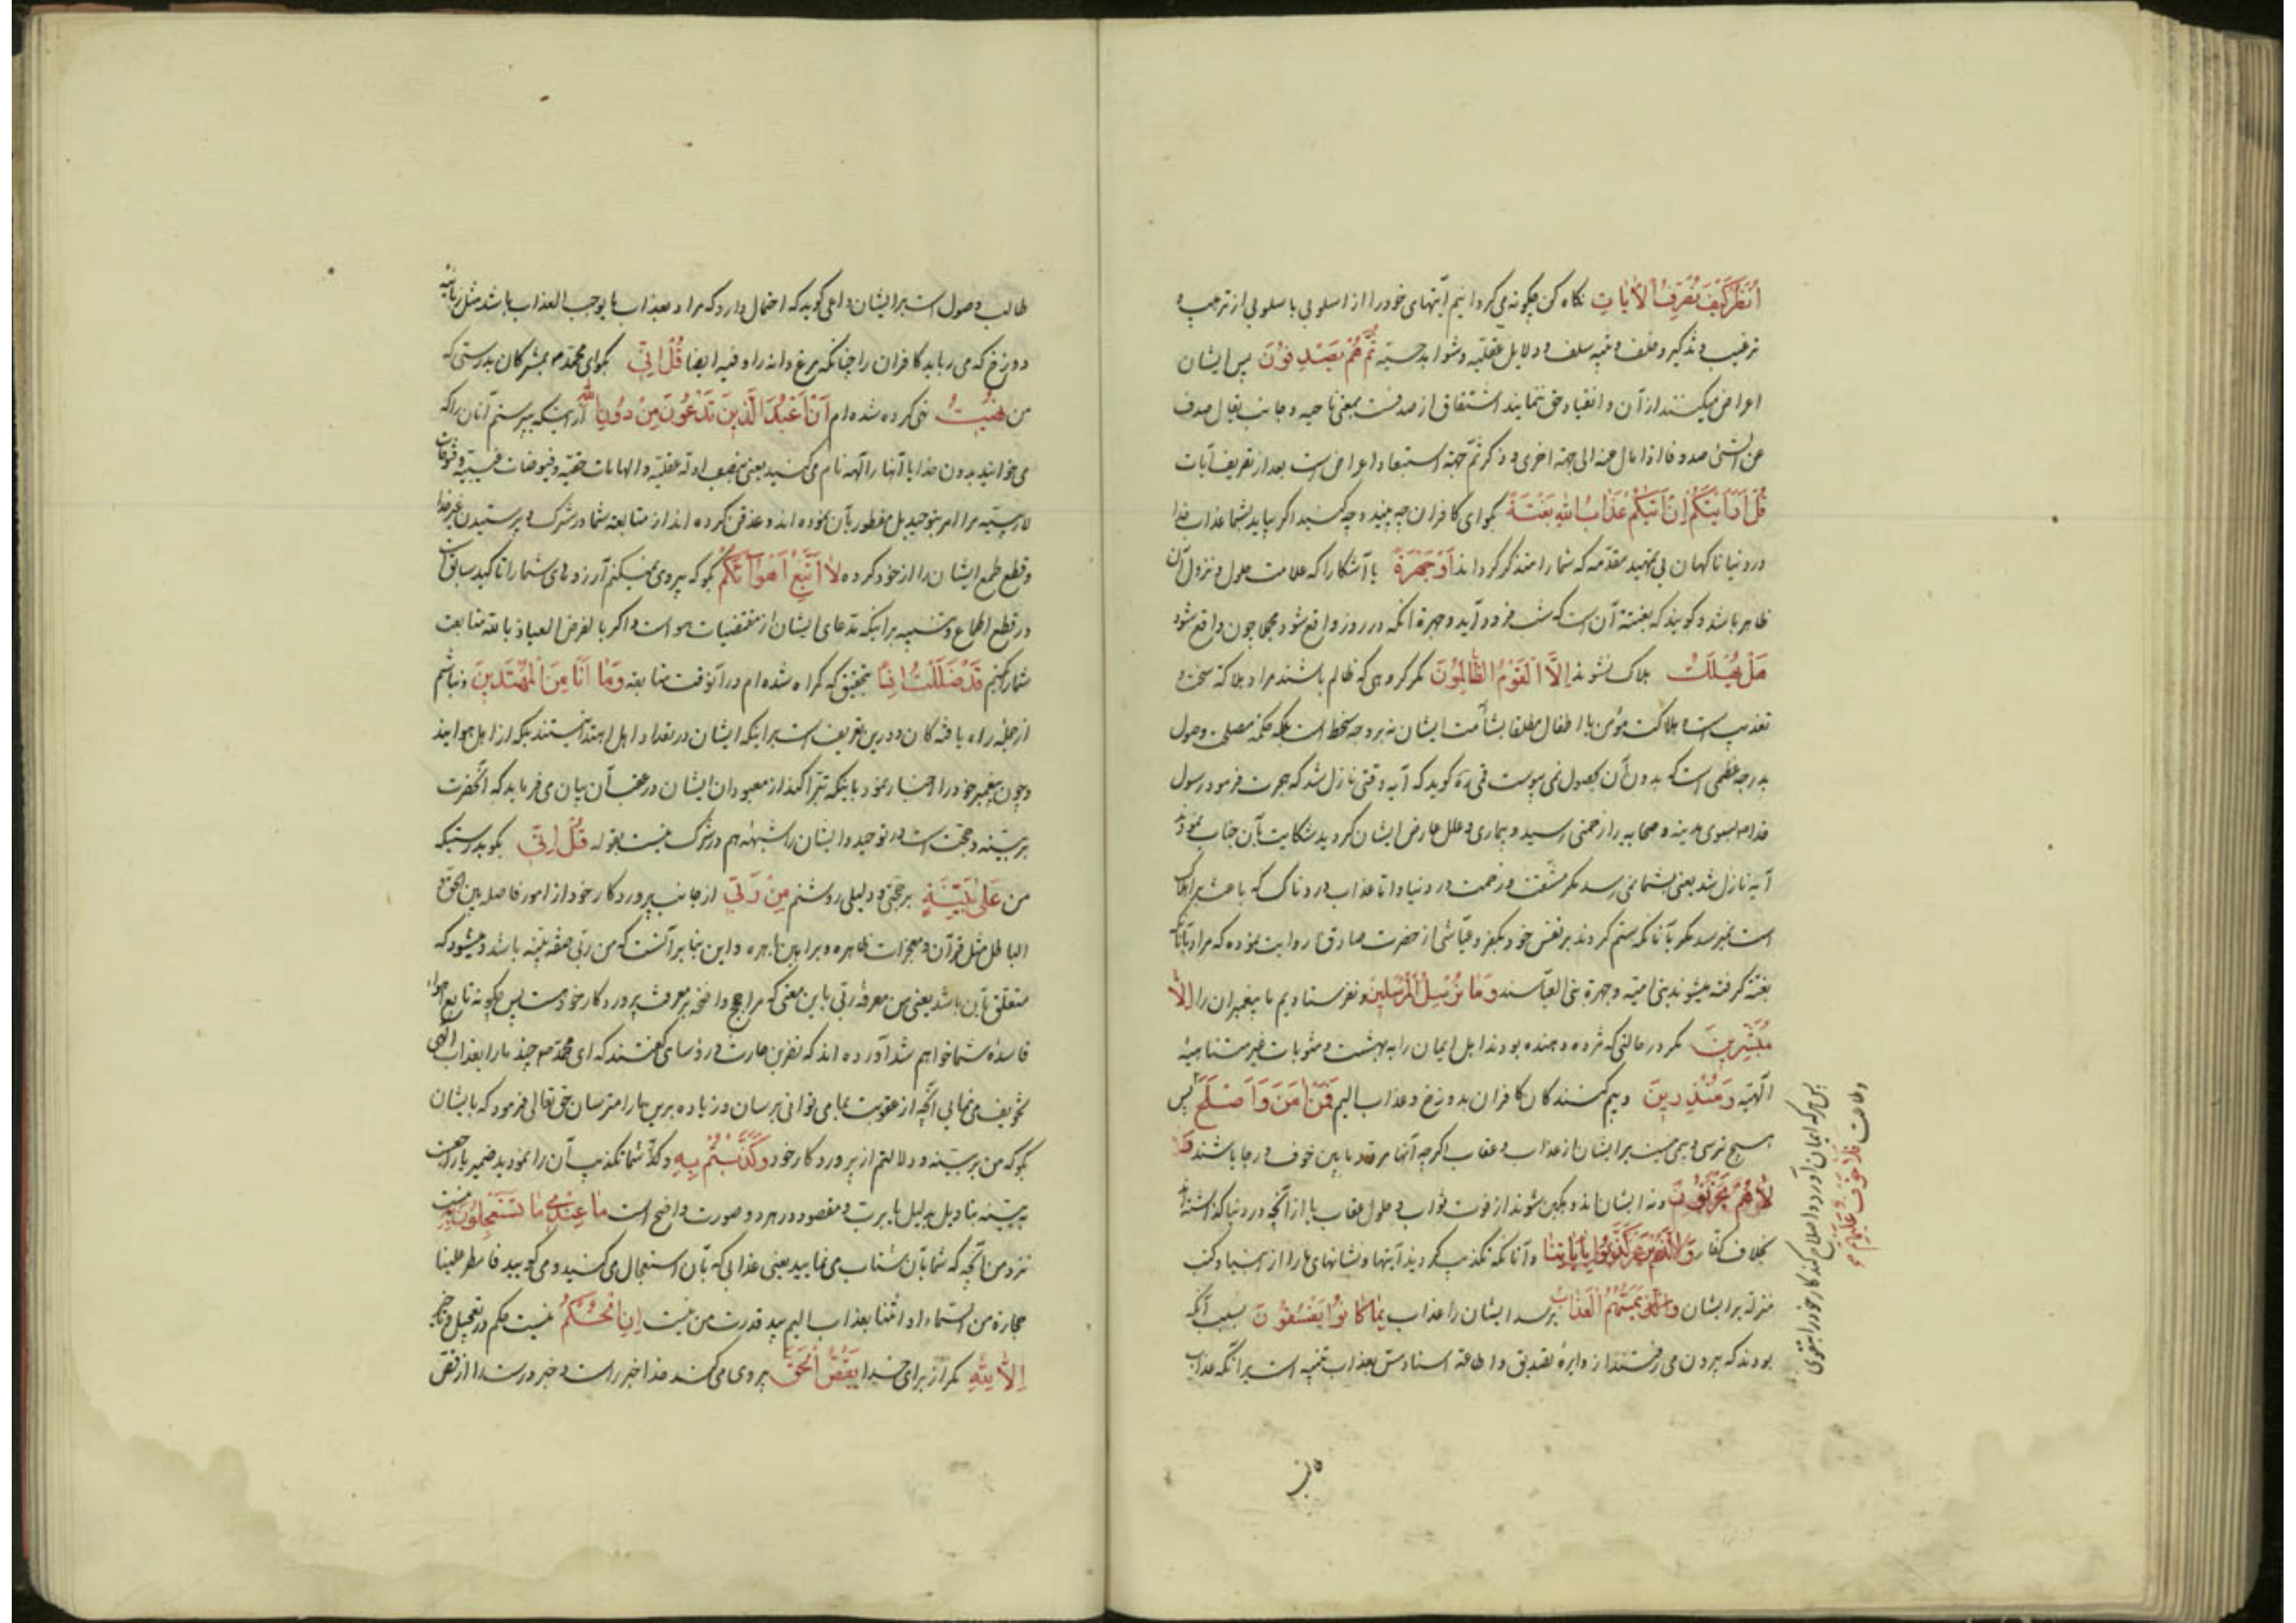 اُنْظُرْ كَيْفَ نُصَرِّفُ الْآيَاتِ نکاه کن چکونه می کردانیم آیتهای خود را از اسلوبی باسلوبی از ترهیب و
ترغیب و تذکیر و دلایل عقلیه و شواهد حسیه ثُمَّ هُمْ يَصْدِفُونَ پس ایشان
اعراض میکنند از آن و انقیاد حق نمینمایند اشتقاق از صدفست بمعنی ناحیه و جانب یقال صدف
عن الشئ صدوفا اذا مال عنه الی جهة اخری و ذکر ثمّ جهة استبعاد اعراض است بعد از تصریف آیات
قُلْ أَرَأَيْتَكُمْ إِنْ أَتَيكُمْ عَذَابُ اللهِ بَغْتَةً بکو ای کافران چه بینید و چه کنید اکر بیاید بشما عذاب خدا
در دنیا ناکهان بی تمهید مقدمه که شما را متذکر کرداند أَوْ جَهْرَةً یا آشکارا که علامت حلول و نزول آن
ظاهر باشد و کویند که بغتة آن است که شب فرود آید و جهرة آنکه در روز واقع شود و چون واقع شود
هَلْ يُهْلَكُ هلاک نشوند إِلَّا الْقَوْمُ الظَّالِمُونَ مکر کروهی که ظالم باشند مراد هلاکة سخط و
تعذیب است و هلاکت مؤمن یا اطفال ایشان نه بر وجه سخط است بلکه حکمة مصلحت وصول
بدرجه عظمی است که بدون آن بحصول نمی پیوست کوید که آیه وقتی نازل شد که هجرت فرمود رسول
خدا ص بسوی مدینه و صحابه را زحمتی رسید و بیماری و علل عارض ایشان کردید شکایت بآن جناب نمودند
آیه نازل شد یعنی بشما نمی رسد مکر مشقت و زحمت در دنیا و اما عذاب دردناک که باعث هلاک
است نمیرسد مکر بآنانکه ستم کردند بر نفس خود بکفر و عیاشی از حضرت صادق ع روایت نموده که مراد بآنانکه
بغتة کرفته میشوند بنی امیه و جهرة بنی العباسند وَمَا نُرْسِلُ الْمُرْسَلِينَ و نفرستادیم ما پیغمبران را إِلَّا
مُبَشِّرِينَ مکر در حالتی که مژده دهنده بودند اهل ایمان را به بهشت و مثوبات غیر متناهیه
الهیه وَمُنْذِرِينَ و بیم کنندکان کافران بدوزخ و عذاب الیم فَمَنْ آمَنَ وَأَصْلَحَ پس
هیچ ترسی و بیمی نیست بر ایشان از عذاب و عقاب اکر چه آنها مردد مابین خوف و رجا باشند وَ
لَا هُمْ يَحْزَنُونَ و نه ایشان اندوهکین شوند از فوت ثواب و حلول عقاب یا از آنچه در دنیا کذاشتند
بخلاف کفار وَالَّذِينَ كَذَّبُوا بِآيَاتِنَا و آنانکه تکذیب کردند آیتها و نشانهای ما را از انبیا و کتب
منزله بر ایشان يَمَسُّهُمُ الْعَذَابُ برسد ایشان را عذاب بِمَا كَانُوا يَفْسُقُونَ بسبب آنکه
بودند که بیرون می رفتند از دایرهٔ تصدیق و اطاعة اسناد مس بعذاب تنبیه است بر آنکه عذاب
پس هرکه ایمان آورد و اصلاح کند کار خود را بتقوی
و طاعت فَلَا خَوْفٌ عَلَيْهِمْ
طالب وصول است بر ایشان و کوید که احتمال دارد که مراد بعذاب ما یوجب العذاب باشد مثل زبانیه
دوزخ که می رباید کافران را چنانکه مرغ دانه را و فیه ایضا قُلْ إِنِّي بکو ای محمد ص بمشرکان بدرستی که
من نُهِيتُ نهی کرده شده ام أَنْ أَعْبُدَ الَّذِينَ تَدْعُونَ مِنْ دُونِ اللهِ از اینکه بپرستم آنان را که
می خوانید بدون خدا یا آنها را آلهه نام می کنید یعنی بنصب ادله عقلیه و الهامات خفیه و فیوضات غیبیه و
مرا امر بتوحید بل مفطور بآن نموده اند و غدغن کرده اند از متابعة شما در شرک و پرستیدن غیر خدا
و قطع طمع ایشان را از خود کرده لَا أَتَّبِعُ أَهْوَاءَكُمْ بکو که پیروی نمیکنم آرزوهای شما را تاکید سابق است
در قطع اطماع و تنبیه بر اینکه مدعای ایشان از مقتضیات هوا است و اکر بالفرض العیاذ بالله متابعت
شما کنم قَدْ ضَلَلْتُ إِذًا بتحقیق که کمراه شده ام در آنوقت متابعه وَمَا أَنَا مِنَ الْمُهْتَدِينَ و نباشم
از جمله راه یافتکان و درین تعریض است بر اینکه ایشان در تعداد اهل اهتدا نیستند بلکه از اهل هوایند
و چون پیغمبر خود را اخبار نمود باینکه تبرّا کند از معبودان ایشان در عقب آن بیان می فرماید که آنحضرت
بر بینه و حجت است در توحید و ایشان را شبهه هم در شرک نیست بقوله قُلْ إِنِّي بکو بدرستیکه
من عَلَى بَيِّنَةٍ بر حجتی و دلیلی روشنم مِنْ رَبِّي از جانب پروردکار خود از امور فاصله بین الحق و
الباطل مثل قرآن و معجزات ظاهره و براهین باهره و این بنابر آنست که من ربی صفه بینه باشد و میشود که
متعلق بآن باشد یعنی من معرفة ربی باین معنی که مرا حجج واضحه بر معرفت پروردکار خود هست پس چکونه تابع اهواء
فاسدهٔ شما خواهم شد آورده اند که نضر بن حارث و رؤسای کفتند که ای محمد ص چند ما را بعذاب الهی
تخویف می نمایی آنچه از عقوبت بما می توانی برسان و زیاده برین ما را مترسان حق تعالی فرمود که بایشان
بکو که من بر بینه و دلالتم از پروردکار خود وَكَذَّبْتُمْ بِهِ و شما تکذیب آن را نمودید ضمیر یا راجعست
ببینه بتاویل بدلیل یا برب و مقصود در هر دو صورت واضح است مَا عِنْدِي مَا تَسْتَعْجِلُونَ بِهِ نیست
نزد من آنچه که شما بآن شتاب می نمایید یعنی عذابی که بآن استعجال می کنید و می کویید فامطر علینا
حجارة من السماء او ائتنا بعذاب الیم بید قدرت من نیست إِنِ الْحُكْمُ نیست حکم در تعجیل و تاخیر
إِلَّا لِلَّهِ مکر از برای خدا يَقُصُّ الْحَقَّ پیروی می کند خدا خبر راست و خبر درست را از قص